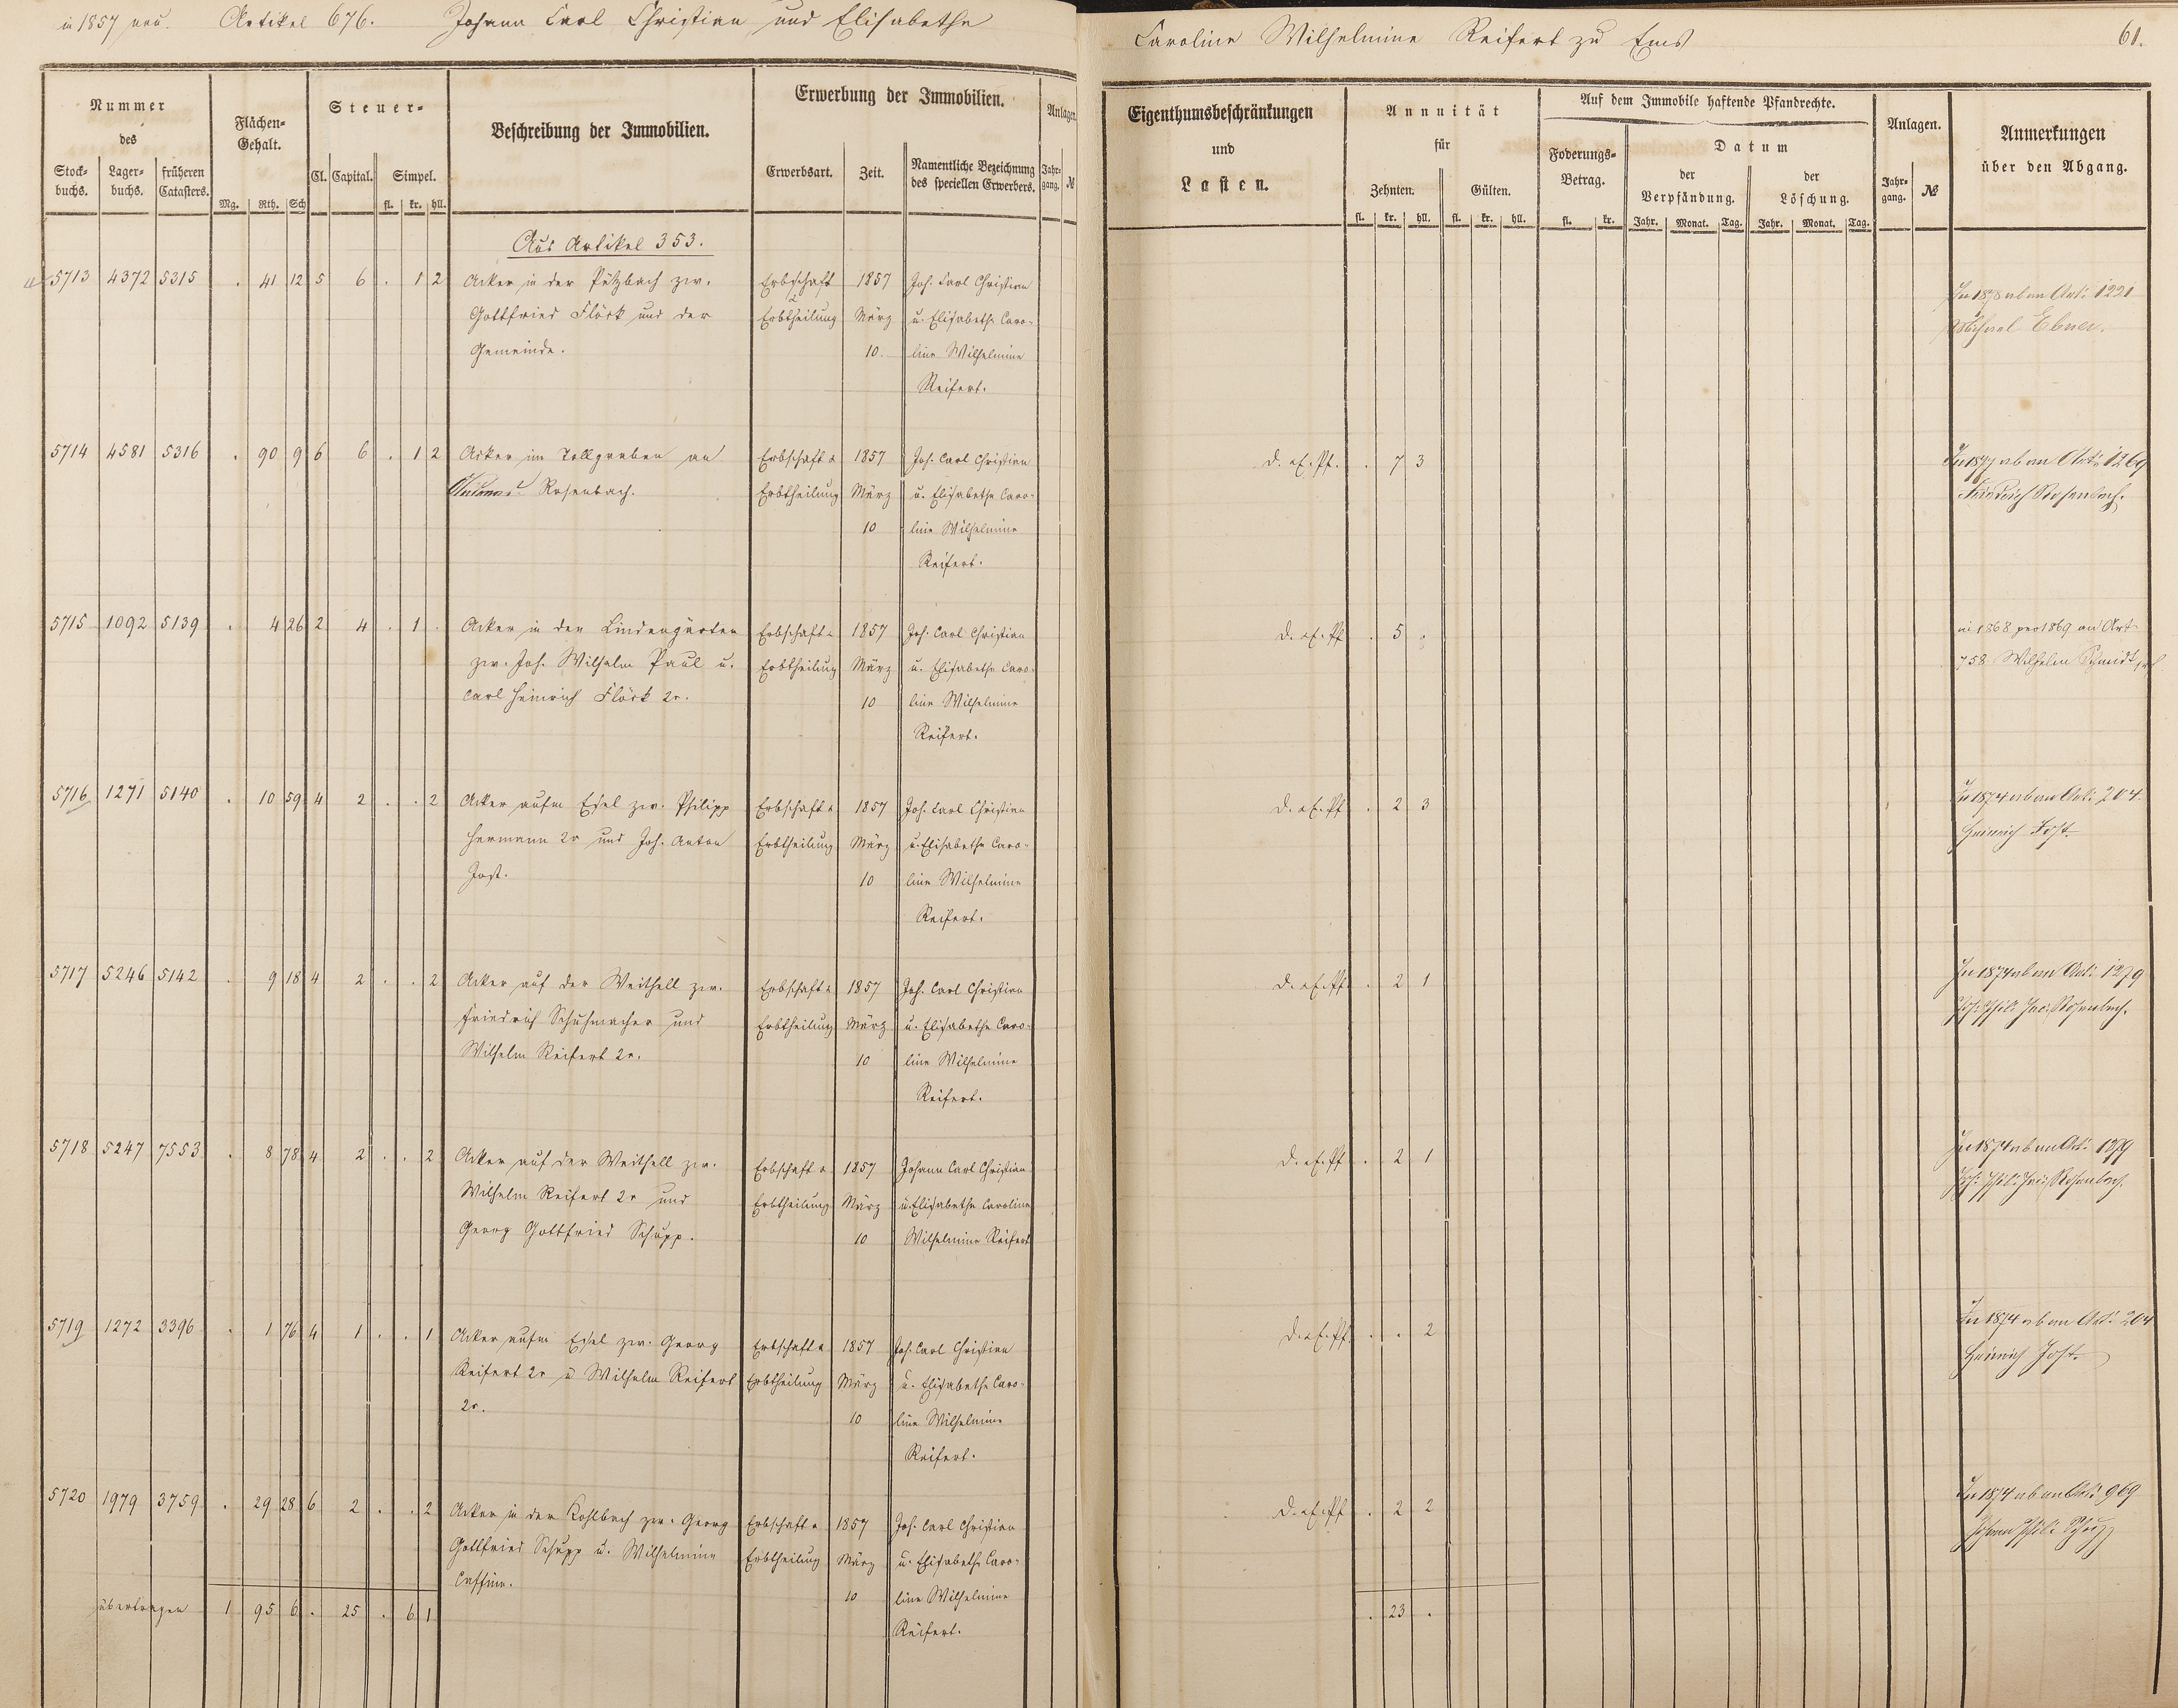 in 1857 neu. Artikel 676. Johann Carl Christian und Elisabethe
Caroline Wilhelmine Reifert zu Ems 61.
Nummer
des
Stock-
buchs.
Lager-
buchs.
früheren
Catasters.
Flächen-
Gehalt.
Mg. Rth. Sch
Steuer-
Cl. Capital. Simpel.
fl. kr. hll.
Beschreibung der Immobilien.
Erwerbung der Immobilien.
Erwerbsart. Zeit.
Namentliche Bezeichnung
des speciellen Erwerbers.
Anlagen.
Jahr-
gang. №
Eigenthumsbeschränkungen
und
Lasten.
Annuität
für
Zehnten. Gülten.
fl. kr. hll. fl. kr. hll.
Auf dem Immobile haftende Pfandrechte.
Foderungs-
Betrag.
fl. kr.
Datum
der
Verpfändung.
der
Löschung.
Jahr. Monat. Tag. Jahr. Monat. Tag.
Anlagen.
Jahr-
gang. №
Anmerkungen
über den Abgang.
Aus Artikel 353.
5713 4372 5315 . 41 12 5 6 . 1 2 Acker in der Pützbach zw. Erbschaft 1857 Joh. Carl Christian
Gottfried Flöck und der Erbtheilung März u. Elisabethe Caro-
Gemeinde. 10. line Wilhelmine
Reifert.
In 1878 ab an Art: 1221
Ebner.
5714 4581 5316 . 90 9 6 6 . 1 2 Acker im Tollgraben an Erbschaft & 1857 Joh. Carl Christian
Rosenbach. Erbtheilung März u. Elisabethe Caro-
10 line Wilhelmine
Reifert.
d. . 7 3
In 1877 ab an Art: 1269
Friedrich Rosenbach.
5715 1092 5139 . 4 26 2 4 . 1 . Acker in den Lindengärten Erbschaft & 1857 Joh. Carl Christian
zw. Joh. Wilhelm Paul u. Erbtheilung März u. Elisabethe Caro-
Carl Heinrich Flöck 2r. 10 line Wilhelmine
Reifert.
d. . 5 .
in 1868 pro 1869 an Art.
758 Wilhelm Schmidt
5716 1271 5140 . 10 59 4 2 . . 2 Acker aufm Esel zw. Philipp Erbschaft & 1857 Joh. Carl Christian
Hermann 2r und Joh. Anton Erbtheilung März u. Elisabethe Caro-
Jost. 10 line Wilhelmine
Reifert.
d. . 2 3
In 1874 ab an Art: 204.
Heinrich Jost.
5717 5246 5142 . 9 18 4 2 . . 2 Acker auf der Weithell zw. Erbschaft & 1857 Joh. Carl Christian
Friedrich Schuhmacher und Erbtheilung März u. Elisabethe Caro-
Wilhelm Reifert 2r. 10 line Wilhelmine
Reifert.
d. . 2 1
In 1874 ab an Art: 1279
Joh: Phil: Jac: Rosenbach.
5718 5247 7553 . 8 78 4 2 . . 2 Acker auf der Weithell zw. Erbschaft & 1857 Johann Carl Christian
Wilhelm Reifert 2r und Erbtheilung März u. Elisabethe Caroline
Georg Gottfried Schupp. 10 Wilhelmine Reifert
d. . 2 1
In 1874 ab an Art: 1279
Joh: Phil: Jac: Rosenbach.
5719 1272 3396 . 1 76 4 1 . . 1 Acker aufm Esel zw. Georg Erbschaft & 1857 Joh. Carl Christian
Reifert 2r u Wilhelm Reifert Erbtheilung März u. Elisabethe Caro-
2r. 10 line Wilhelmine
Reifert.
d. . . 2
In 1874 ab an Art: 204
Heinrich Jost.
5720 1979 3759 . 29 28 6 2 . . 2 Acker in der Kohlbach zw. Georg Erbschaft & 1857 Joh. Carl Christian
Gottfried Schupp u. Wilhelmine Erbtheilung März u. Elisabethe Caro-
10 line Wilhelmine
Reifert.
d. . 2 2
In 1874 ab an Art: 969
Johann Phil: Schupp
übertragen 1 95 6 . 25 . 6 1
. 23 .